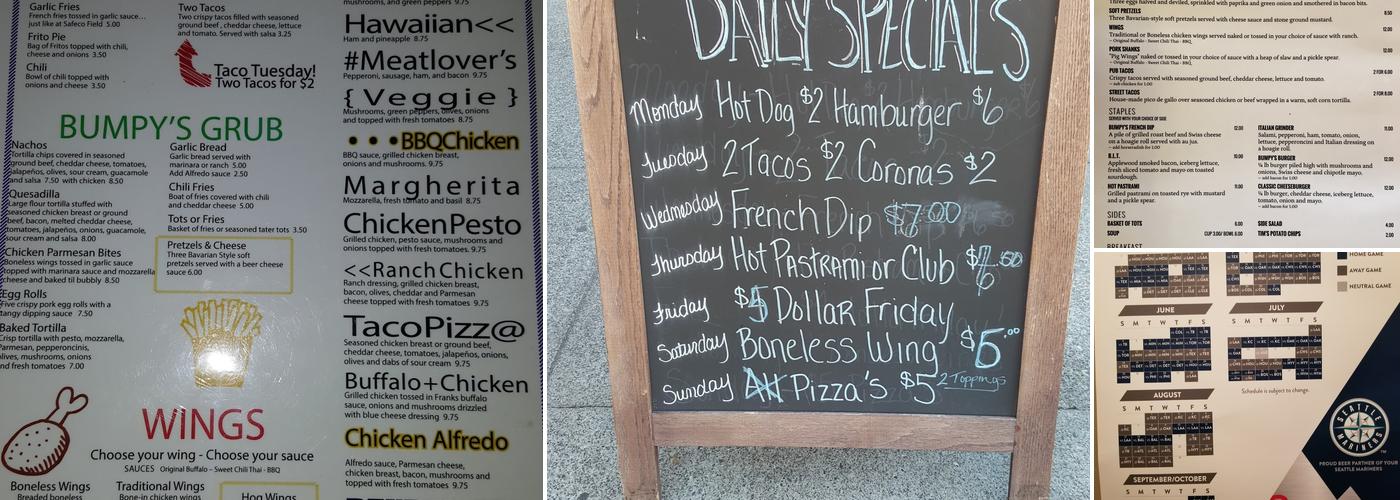 Garlic Fries
French fries tossed in garlic sauce...
just like at Safeco Field 5.00
Frito Pie
Bag of Fritos topped with chili,
cheese and onions 3.50
Chili
Bowl of chili topped with
cheese and onions 3.50
Two Tacos
Two crispy tacos filled with seasoned
ground beef, cheddar cheese, lettuce
and tomato. Served with salsa 3.25
Taco Tuesday!
Two Tacos for $2
BUMPY'S GRUB
Nachos
Tortilla chips covered in seasoned
ground beef, cheddar cheese, tomatoes,
jalapeños, olives, sour cream, guacamole
and salsa 7.50 with chicken 8.50
Quesadilla
Large flour tortilla stuffed with
seasoned chicken breast or ground
beef, bacon, melted cheddar cheese,
tomatoes, jalapeños, onions, guacamole,
sour cream and salsa 8.00
Chicken Parmesan Bites
Boneless wings tossed in garlic sauce
topped with marinara sauce and mozzarella
cheese and baked til bubbly 8.50
Egg Rolls
Five crispy pork egg rolls with a
tangy dipping sauce 7.50
Baked Tortilla
Crisp tortilla with pesto, mozzarella,
Parmesan, pepperoncinis,
olives, mushrooms, onions
and fresh tomatoes 7.00
Garlic Bread
Garlic bread served with
marinara or ranch 5.00
Add Alfredo sauce 2.50
Chili Fries
Boat of fries covered with chili
and cheddar cheese 5.00
Tots or Fries
Basket of fries or seasoned tater tots 3.50
Pretzels & Cheese
Three Bavarian Style soft
pretzels served with a beer cheese
sauce 6.00
WINGS
Choose your wing - Choose your sauce
SAUCES Original Buffalo - Sweet Chili Thai - BBQ
Boneless Wings
Breaded boneless
Traditional Wings
Bone-in chicken wings
Hog Wings
mushrooms, and green peppers 9.75
Hawaiian<<
Ham and pineapple 8.75
#Meatlover's
Pepperoni, sausage, ham, and bacon 9.75
{ Veggie }
Mushrooms, green peppers, olives, onions
and topped with fresh tomatoes 9.75
• • • BBQChicken
BBQ sauce, grilled chicken breast,
onions and mushrooms. 9.75
Margherita
Mozzarella, fresh tomato and basil 8.75
ChickenPesto
Grilled chicken, pesto sauce, mushrooms and
onions topped with fresh tomatoes. 9.75
<<RanchChicken
Ranch dressing, grilled chicken breast,
bacon, olives, cheddar and Parmesan
cheese topped with fresh tomatoes. 9.75
TacoPizz@
Seasoned chicken breast or ground beef,
cheddar cheese, tomatoes, jalapeños, onions,
olives and dabs of sour cream 9.75
Buffalo+Chicken
Grilled chicken tossed in Franks buffalo
sauce, onions and mushrooms drizzled
with blue cheese dressing 9.75
Chicken Alfredo
Alfredo sauce, Parmesan cheese,
chicken breast, bacon, mushrooms and
topped with fresh tomatoes. 9.75
DAILY SPECIALS
Monday Hot Dog $2 Hamburger $6
Tuesday 2 Tacos $2 Coronas $2
Wednesday French Dip $7.00
Thursday Hot Pastrami or Club
Friday $5 Dollar Friday
Saturday Boneless Wing $5.00
Sunday Pizza's $5 2 Toppings
Three eggs halved and deviled, sprinkled with paprika and green onion and smothered in bacon bits.
SOFT PRETZELS 8.50
Three Bavarian-style soft pretzels served with cheese sauce and stone ground mustard.
WINGS 12.00
Traditional or Boneless chicken wings served naked or tossed in your choice of sauce with ranch.
– Original Buffalo - Sweet Chili Thai - BBQ
PORK SHANKS 12.00
"Pig Wings" naked or tossed in your choice of sauce with a heap of slaw and a pickle spear.
– Original Buffalo - Sweet Chili Thai - BBQ
PUB TACOS 2 FOR 6.00
Crispy tacos served with seasoned ground beef, cheddar cheese, lettuce and tomato.
STREET TACOS 2 FOR 8.00
House-made pico de gallo over seasoned chicken or beef wrapped in a warm, soft corn tortilla.
STAPLES
SERVED WITH YOUR CHOICE OF SIDE
BUMPY'S FRENCH DIP 12.00
A pile of grilled roast beef and Swiss cheese
on a hoagie roll served with au jus.
– add horseradish for 1.00
B.L.T. 10.00
Applewood smoked bacon, iceberg lettuce,
fresh sliced tomato and mayo on toasted
sourdough.
HOT PASTRAMI 11.00
Grilled pastrami on toasted rye with mustard
and pickle spear.
ITALIAN GRINDER 11.00
Salami, pepperoni, ham, tomato, onion,
lettuce, pepperoncini and Italian dressing on
a hoagie roll.
BUMPY'S BURGER 12.00
¼ lb burger piled high with mushrooms and
onions, Swiss cheese and chipotle mayo.
– add bacon for 1.00
CLASSIC CHEESEBURGER 12.00
¼ lb burger, cheddar cheese, iceberg lettuce,
tomato, onion and mayo.
– add bacon for 1.00
SIDES
BASKET OF TOTS 6.00
SOUP CUP 3.00/ BOWL 6.00
SIDE SALAD 4.00
TIM'S POTATO CHIPS 2.00
BREAKFAST
HOME GAME
AWAY GAME
NEUTRAL GAME
JUNE
S M T W T F S
JULY
S M T W T F S
Schedule is subject to change.
AUGUST
S M T W T F S
SEPTEMBER/OCTOBER
S M T W T F S
SEATTLE
MARINERS
PROUD BEER PARTNER OF YOUR
SEATTLE MARINERS